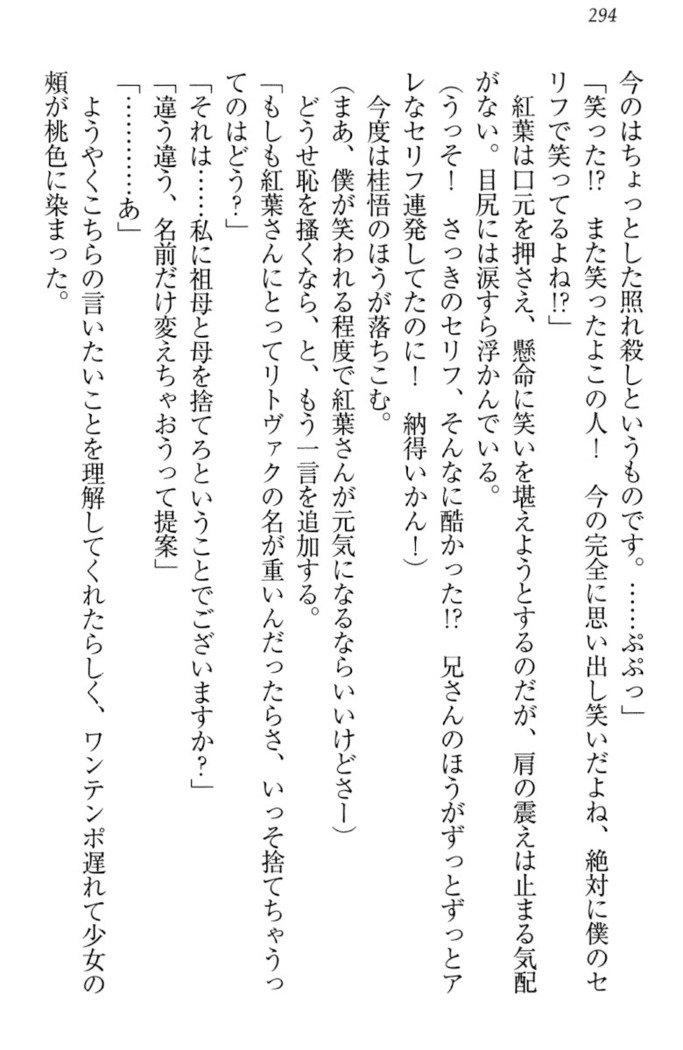 294
今のはちょっとした照れ殺しというものです。……ぷぷっ」
「笑った!?　また笑ったよこの人！　今の完全に思い出し笑いだよね、絶対に僕のセ
リフで笑ってるよね!?」
　紅葉は口元を押さえ、懸命に笑いを堪えようとするのだが、肩の震えは止まる気配
がない。目尻には涙すら浮かんでいる。
（うっそ！　さっきのセリフ、そんなに酷かった!?　兄さんのほうがずっとずっとア
レなセリフ連発してたのに！　納得いかん！）
　今度は桂悟のほうが落ちこむ。
（まあ、僕が笑われる程度で紅葉さんが元気になるならいいけどさー）
　どうせ恥を掻くなら、と、もう一言を追加する。
「もしも紅葉さんにとってリトヴァクの名が重いんだったらさ、いっそ捨てちゃうっ
てのはどう？」
「それは……私に祖母と母を捨てろということでございますか？」
「違う違う、名前だけ変えちゃおうって提案」
「…………あ」
　ようやくこちらの言いたいことを理解してくれたらしく、ワンテンポ遅れて少女の
頬が桃色に染まった。